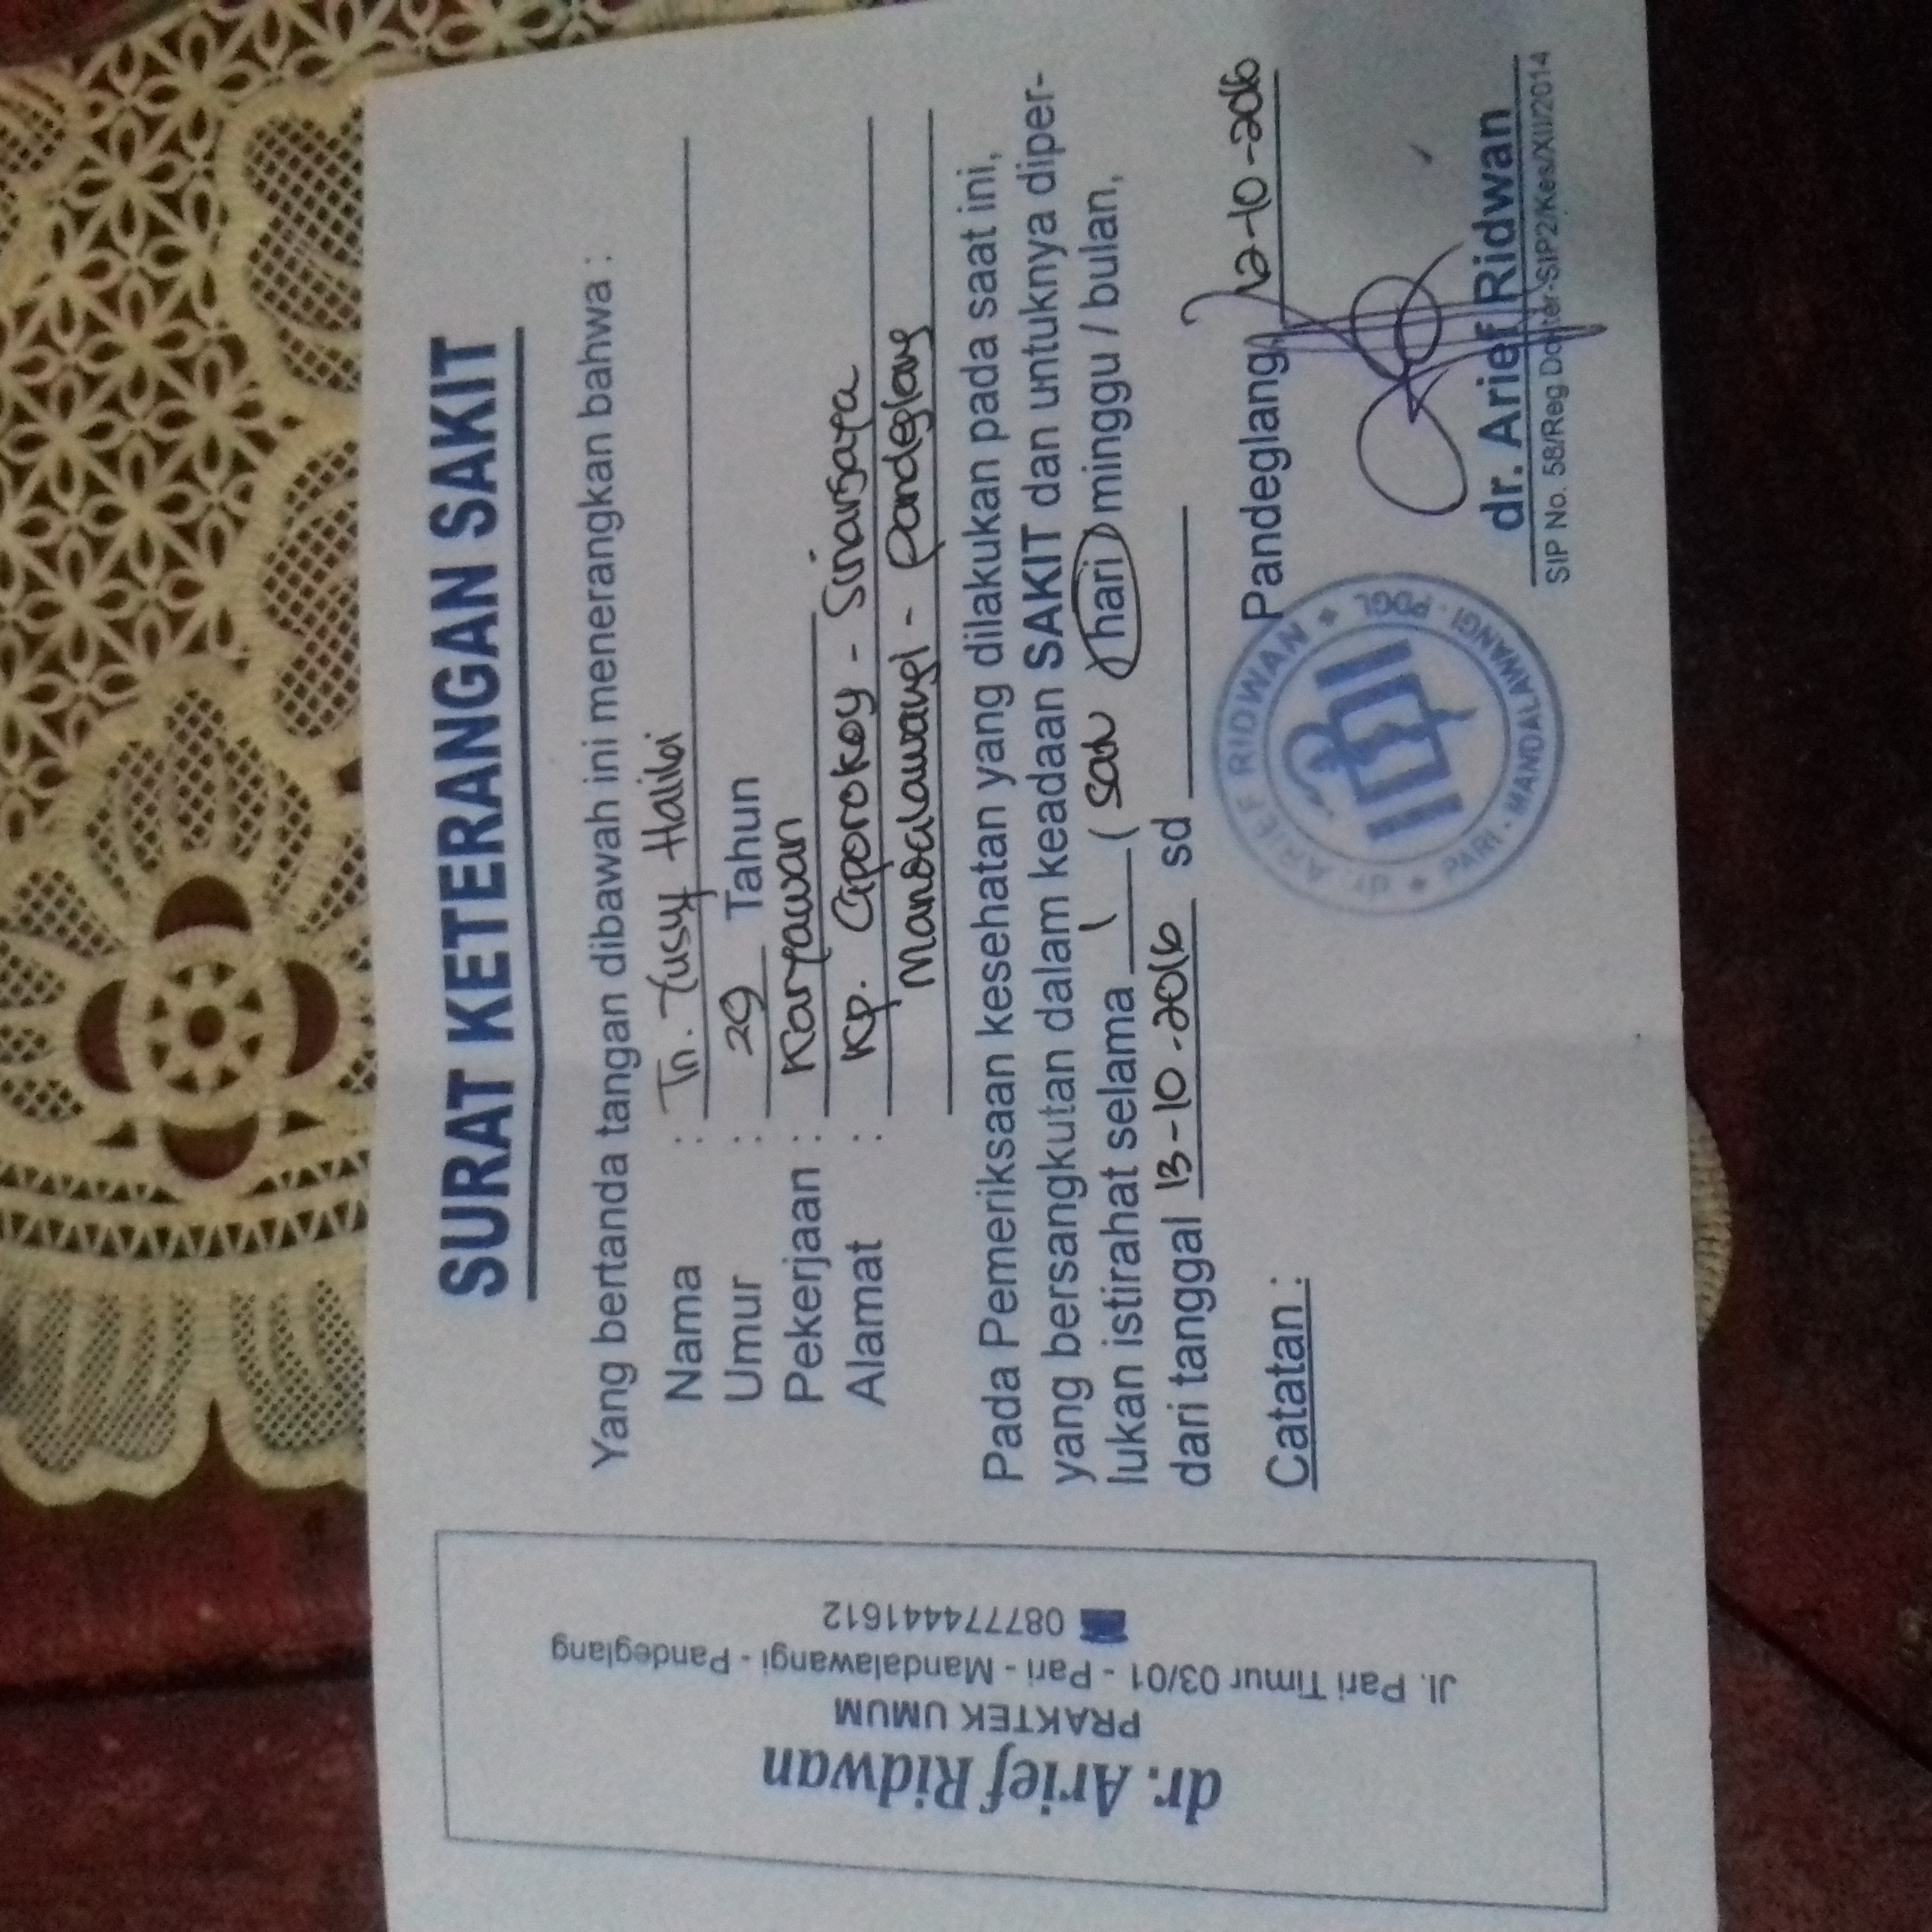 dr. Arief Ridwan
PRAKTEK UMUM
Jl. Pari Timur 03/01 - Pari - Mandalawangi - Pandeglang
☎ 087774441612
SURAT KETERANGAN SAKIT
Yang bertanda tangan dibawah ini menerangkan bahwa :
Nama : Tn. Yusuf Halibi
Umur : 29 Tahun
Pekerjaan : Karyawan
Alamat : Kp. Ciporokoy - Sinarjaya
Mandalawangi - Pandeglang
Pada Pemeriksaan kesehatan yang dilakukan pada saat ini,
yang bersangkutan dalam keadaan SAKIT dan untuknya diper-
lukan istirahat selama 1 ( satu ) hari / minggu / bulan,
dari tanggal 13-10-2016 sd
Catatan :
Pandeglang, 12-10-2016
dr. ARIEF RIDWAN
IDI
PARI - MANDALAWANGI - PDGL
dr. Arief Ridwan
SIP No. 58/Reg Dokter-SIP2/Kes/XII/2014